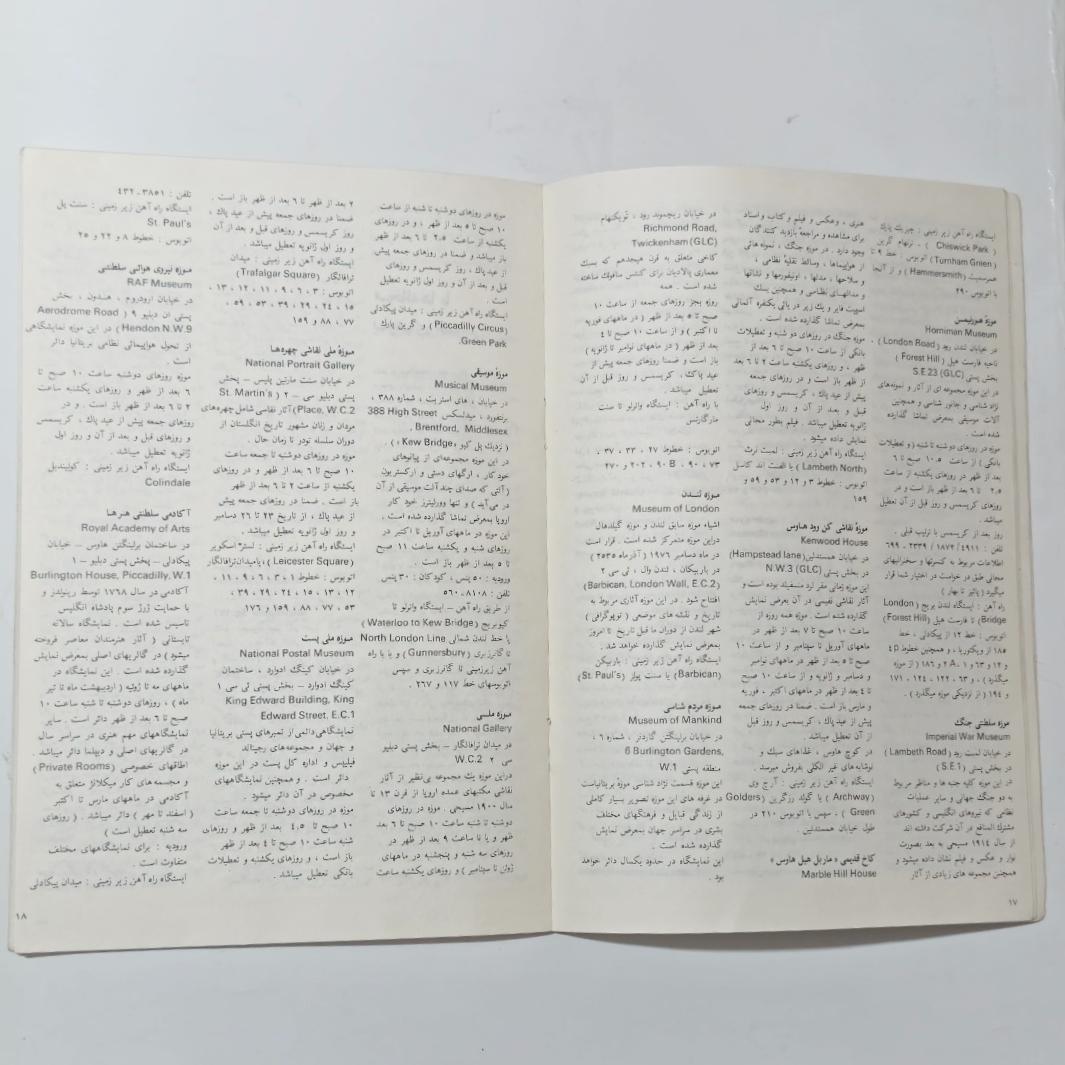 ایستگاه راه آهن زیر زمینی : چیزیك پارك
( Chiswick Park ) ، ترنهام گرین
(Turnham Grien) اتوبوس : خط ۹ تا
همرسمیت (Hammersmith) و از آنجا
با اتوبوس ۲۹۰
موزهٔ هورنیمن
Horniman Museum
در خیابان لندن رید (London Road) ،
ناحیه فارست هیل ( Forest Hill )
بخش پستی S.E.23 (GLC)
در این موزه مجموعه ای از آثار و نمونه‌های
نژاد شناسی و جانور شناسی و همچنین
آلات موسیقی بمعرض تماشا گذارده
شده است .
موزه در روزهای دوشنبه تا شنبه ( و تعطیلات
بانکی ) از ساعت ۱۰.۵ صبح تا ۶
بعد از ظهر و روزهای یکشنبه از ساعت
۲.۵ تا ۶ بعد از ظهر باز است و در
روزهای جمعه پیش از عید پاك ، کریسمس
و روزهای قبل و بعد از آن تعطیل
میباشد .
روز بعد از کریسمس با ترتیب قبلی .
تلفن : ۴۹۱۱/ ۱۸۷۲ / ۲۳۳۹ - ۶۹۹
اطلاعات مربوط به کنسرتها و سخنرانیهای
مجانی طبق درخواست در اختیار شما قرار
میگیرد ( پائیز تا بهار )
راه آهن : ایستگاه لندن بریج (London
Bridge) تا فارست هیل (Forest Hill)
اتوبوس : خط ۱۲ از پیکادلی ، خط
۱۸۵ از ویکتوریا ، و همچنین خطوط ۴p
و ۱۲ و ۶۳ و ۲A۰۱ و ۱۸۶ ( از موزه
میگذرد ) ، و ۶۳ ، ۱۲۲ ، ۱۲۴ ، ۱۷۱
و ۱۹۴ ( از نزدیکی موزه میگذرد ) .
موزه سلطنتی جنگ
Imperial War Museum
در خیابان لمبت رید ( Lambeth Road )
در بخش پستی ( S.E.1 )
در این موزه کلیه جنبه ها و مناظر مربوط
به دو جنگ جهانی و سایر عملیات
نظامی که نیروهای انگلیسی و کشورهای
مشترك المنافع در آن شرکت داشته اند
از سال ۱۹۱۴ مسیحی به بعد بصورت
نوار و عکس و فیلم نشان داده میشود و
همچنین مجموعه های زیادی از آثار
هنری ، وعکس و فیلم و کتاب واسناد
برای مشاهده و مراجعهٔ بازدید کنندگان
وجود دارد . در موزه جنگ ، نمونه هائی
از هواپیماها ، وسائط نقلیهٔ نظامی ،
و سلاحها ، مدلها ، اونیفورمها و نشانها
و مدالهای نظامی و همچنین یك
اسپیت فایر و یك زیر دریائی یکنفره آلمانی
بمعرض تماشا گذارده شده است .
موزه جنگ در روزهای دوشنبه و تعطیلات
بانکی از ساعت ۱۰ صبح تا ۶ بعد از
ظهر ، و روزهای یکشنبه ساعت ۲ تا ۶ بعد
از ظهر باز است و در روزهای جمعه
پیش از عید پاك ، کریسمس و روزهای
قبل و بعد از آن و روز اول
ژانویه تعطیل میباشد . فیلم بطور مجانی
نمایش داده میشود .
ایستگاه راه آهن زیر زمینی : لمبت نرث
(Lambeth North) یا الفنت اند کاسل
اتوبوس : خطوط ۳ و ۱۲ و ۵۳ و ۵۹ و
۱۵۹
موزهٔ نقاشی کن رود هاوس
Kenwood House
در خیابان همستدلین(Hampstead lane)
در بخش پستی N.W.3 (GLC)
این موزه زمانی مقر لرد منسفیلد بوده است و
آثار نقاشی نفیسی در آن بعرض نمایش
گذارده شده است . موزه همه روزه از
ساعت ۱۰ صبح تا ۷ بعد از ظهر در
ماههای آوریل تا سپتامبر و از ساعت ۱۰
صبح تا ۵ بعد از ظهر در ماههای نوامبر
و دسامبر و ژانویه و از ساعت ۱۰ صبح
تا ۴ بعد از ظهر در ماههای اکتبر ، فوریه
و مارس باز است . ضمنا در روزهای جمعه
پیش از عید پاك ، کریسمس و روز قبل
از آن تعطیل میباشد .
در کوچ هاوس ، غذاهای سبك و
نوشابه های غیر الکلی بفروش میرسد .
ایستگاه راه آهن زیر زمینی : آرچ وی
( Archway) یا گولد رزگرین (Golders
Green ) ، سپس با اتوبوس ۲۱۰ در
طول خیابان همستدلین .
کاخ قدیمی « ماربل هیل هاوس »
Marble Hill House
در خیابان ریچموند رود ، تویکنهام
Richmond Road,
Twickenham (GLC)
کاخی متعلق به قرن هیجدهم که بسبك
معماری پالادیان برای کنتس سافوك ساخته
شده است . همه
روزه بجز روزهای جمعه از ساعت ۱۰
صبح تا ۵ بعد از ظهر ( در ماههای فوریه
تا اکتبر ) و از ساعت ۱۰ صبح تا ۴
بعد از ظهر ( در ماههای نوامبر تا ژانویه )
باز است و ضمنا روزهای جمعه پیش از
عید پاك ، کریسمس و روز قبل از آن
تعطیل میباشد .
با راه آهن : ایستگاه واترلو تا سنت
مارگارتس
اتوبوس : خطوط ۲۷ ، ۳۳ ، ۳۷ ،
۷۳ ، ۹۰ ، ۹۰B ، ۲۰۲ و ۲۷۰
موزهٔ لندن
Museum of London
اشیاء موزه سابق لندن و موزه گیلدهال
دراین موزه متمرکز شده است . قرار است
در ماه دسامبر ۱۹۷۶ ( آذرماه ۲۵۳۵ )
در باربیکان ، لندن وال ، ئی سی ۲
(Barbican, London Wall, E.C.2)
افتتاح شود . در این موزه آثاری مربوط به
تاریخ و نقشه های موضعی ( توپوگرافی )
شهر لندن از دوران ما قبل تاریخ تا امروز
بمعرض نمایش گذارده خواهد شد .
ایستگاه راه آهن زیر زمینی : باربیکن
(Barbican) یا سنت پولز (St. Paul's)
موزه مردم شناسی
Museum of Mankind
در خیابان برلینگتن گاردنز ، شماره ۶ ،
6 Burlington Gardens,
منطقه پستی W.1
این موزه قسمت نژاد شناسی موزهٔ بریتانیاست
در غرفه های این موزه تصویر بسیار کاملی
از زندگی قبایل و فرهنگهای مختلف
بشری در سراسر جهان بمعرض نمایش
گذارده شده است .
این نمایشگاه در حدود یکسال دائر خواهد
بود .
۱۷
موزه در روزهای دوشنبه تا شنبه از ساعت
۱۰ صبح تا ۵ بعد از ظهر ، و در روزهای
یکشنبه از ساعت ۲.۵ تا ۶ بعد از ظهر
باز میباشد و ضمنا در روزهای جمعه پیش
از عید پاك ، روز کریسمس و روزهای
قبل و بعد از آن و روز اول ژانویه تعطیل
است .
ایستگاه راه آهن زیر زمینی : میدان پیکادلی
(Piccadilly Circus) و گرین پارك
Green Park.
موزه موسیقی
Musical Museum
در خیابان ، های استریت ، شماره ۳۸۸ ،
برنتفورد ، میدلسکس 388 High Street
Brentford, Middlesex .
( نزدیك پل کیو « Kew Bridge» )
در این موزه مجموعه‌ای از پیانوهای
خود کار ، ارگهای دستی و ارکستریون
( آلتی که صدای چند آلت موسیقی از آن
در می‌آید ) و تنها وورلیتزر خود کار
اروپا بمعرض تماشا گذارده شده است .
این موزه در ماههای آوریل تا اکتبر در
روزهای شنبه و یکشنبه ساعت ۱۱ صبح
تا ۵ بعد از ظهر باز است .
ورودیه : ۵۰ پنس ، کودکان : ۳۰ پنس
تلفن : ۸۱۰۸-۵۶۰
از طریق راه آهن – ایستگاه واترلو تا
کیوبریج (Waterloo to Kew Bridge)
یا خط لندن شمالی North London Line
تا گانرزبری (Gunnersbury ) و یا با راه
آهن زیرزمینی تا گانرزبری و سپس
اتوبوسهای خط ۱۱۷ و ۲۶۷ .
موزه ملی
National Gallery
در میدان ترافالگار – بخش پستی دبلیو
سی ۲ W.C.2
دراین موزه یك مجموعه بی‌نظیر از آثار
نقاشی مکتبهای عمده اروپا از قرن ۱۳ تا
سال ۱۹۰۰ مسیحی . موزه در روزهای
دوشنبه تا شنبه ساعت ۱۰ صبح تا ۶ بعد
ظهر و یا تا ساعت ۹ بعد از ظهر در
روزهای سه شنبه و پنجشنبه در ماههای
ژوئن تا سپتامبر ) و روزهای یکشنبه ساعت
۲ بعد از ظهر تا ۶ بعد از ظهر باز است .
ضمنا در روزهای جمعه پیش از عید پاك ،
روز کریسمس و روزهای قبل و بعد از آن
و روز اول ژانویه تعطیل میباشد .
ایستگاه راه آهن زیر زمینی : میدان
ترافالگار (Trafalgar Square)
اتوبوس : ۳ ، ۶ ، ۹ ، ۱۱ ، ۱۲ ، ۱۳ ،
۱۵ ، ۲۴ ، ۲۹ ، ۳۹ ، ۵۳ ، ۵۹ ،
۷۷ ، ۸۸ و ۱۵۹
موزهٔ ملی نقاشی چهره‌ها
National Portrait Gallery
در خیابان سنت مارتین پلیس – پخش
پستی دبلیو سی – ۲ ( St. Martin's
Place, W.C.2) آثار نقاشی شامل چهره‌های
مردان و زنان مشهور تاریخ انگلستان از
دوران سلسله تودر تا زمان حال .
موزه در روزهای دوشنبه تا جمعه ساعت
۱۰ صبح تا ۶ بعد از ظهر و در روزهای
یکشنبه از ساعت ۲ تا ۶ بعد از ظهر
باز است . ضمنا در روزهای جمعه پیش
از عید پاك ، از تاریخ ۲۳ تا ۲۶ دسامبر
و روز اول ژانویه تعطیل میباشد .
ایستگاه راه آهن زیر زمینی : لستر اسکویر
(Leicester Square )،یامیدان‌ترافالگار
اتوبوس : خطوط ۱ ، ۳ ، ۶ ، ۹ ، ۱۱ ،
۱۲ ، ۱۳ ، ۱۵ ، ۲۴ ، ۲۹ ، ۳۹ ،
۵۳ ، ۷۷ ، ۸۸ ، ۱۵۹ و ۱۷۶
موزهٔ ملی پست
National Postal Museum
در خیابان کینگ ادوارد ، ساختمان
کینگ ادوارد – بخش پستی ئی سی ۱
King Edward Building, King
Edward Street, E.C.1
نمایشگاهی دائمی از تمبرهای پستی بریتانیا
و جهان و مجموعه‌های رجینالد
فیلیپس و اداره کل پست در این موزه
دائر است . و همچنین نمایشگاههای
مخصوص در آن دائر میشود .
موزه در روزهای دوشنبه تا جمعه ساعت
۱۰ صبح تا ۴.۵ بعد از ظهر و روزهای
شنبه ساعت ۱۰ صبح تا ۴ بعد از ظهر
باز است ، و روزهای یکشنبه و تعطیلات
بانکی تعطیل میباشد .
تلفن : ۳۸۵۱-۴۳۲
ایستگاه راه آهن زیر زمینی : سنت پل
St. Paul's
اتوبوس : خطوط ۸ و ۲۲ و ۲۵
موزه نیروی هوائی سلطنتی
RAF Museum
در خیابان ارودروم ، هندون ، بخش
پستی ان دبلیو ۹ ( Aerodrome Road
Hendon N.W.9) در این موزه نمایشگاهی
از تحول هواپیمائی نظامی بریتانیا دائر
است .
موزه روزهای دوشنبه تا شنبه ساعت ۱۰ صبح تا
۶ بعد از ظهر و روزهای یکشنبه ساعت
۲ تا ۶ بعد از ظهر باز است . و در
روزهای جمعه پیش از عید پاك ، کریسمس
و روزهای قبل و بعد از آن و روز اول
ژانویه تعطیل میباشد .
ایستگاه راه آهن زیر زمینی : کولیندیل
Colindale
آکادمی سلطنتی هنرها
Royal Academy of Arts
در ساختمان برلینگتن هاوس – خیابان
پیکادلی – پخش پستی دبلیو – ۱
Burlington House, Piccadilly, W.1
آکادمی در سال ۱۷۶۸ توسط رینولدز و
با حمایت ژرژ سوم پادشاه انگلیس
تاسیس شده است . نمایشگاه سالانه
تابستانی ( آثار هنرمندان معاصر فروخته
میشود ) در گالریهای اصلی بمعرض نمایش
گذارده شده است . این نمایشگاه در
ماههای مه تا ژوئیه ( اردیبهشت ماه تا تیر
ماه ) ، روزهای دوشنبه تا شنبه ساعت ۱۰
صبح تا ۶ بعد از ظهر دائر است . سایر
نمایشگاههای مهم هنری در سراسر سال
در گالریهای اصلی و دیپلما دائر میباشد .
اطاقهای خصوصی (Private Rooms )
و مجسمه های کار میکلانژ متعلق به
آکادمی در ماههای مارس تا اکتبر
( اسفند تا مهر ) دائر میباشد . ( روزهای
سه شنبه تعطیل است )
ورودیه : برای نمایشگاههای مختلف
متفاوت است .
ایستگاه راه آهن زیر زمینی : میدان پیکادلی
۱۸